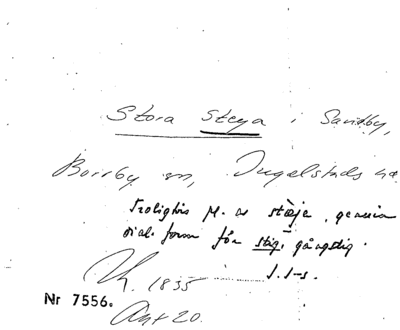 Stora Steya i Sandby,
Borrby sn, Ingelstads hd
Troligtvis pl. av stæje, gemein
dial. form för stig, gångstig.
1855 J. I-s.
Nr 7556.
Akt 20.